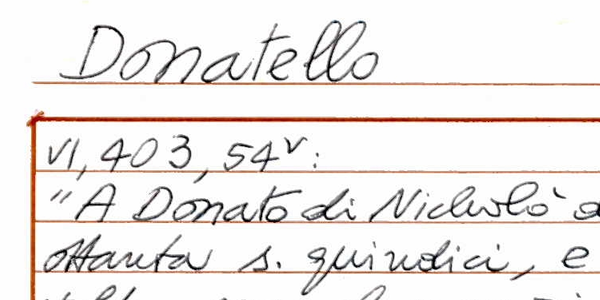 Donatello
VI, 403, 54v:
"A Donato di Nicholò
ottanta s. quindici, e